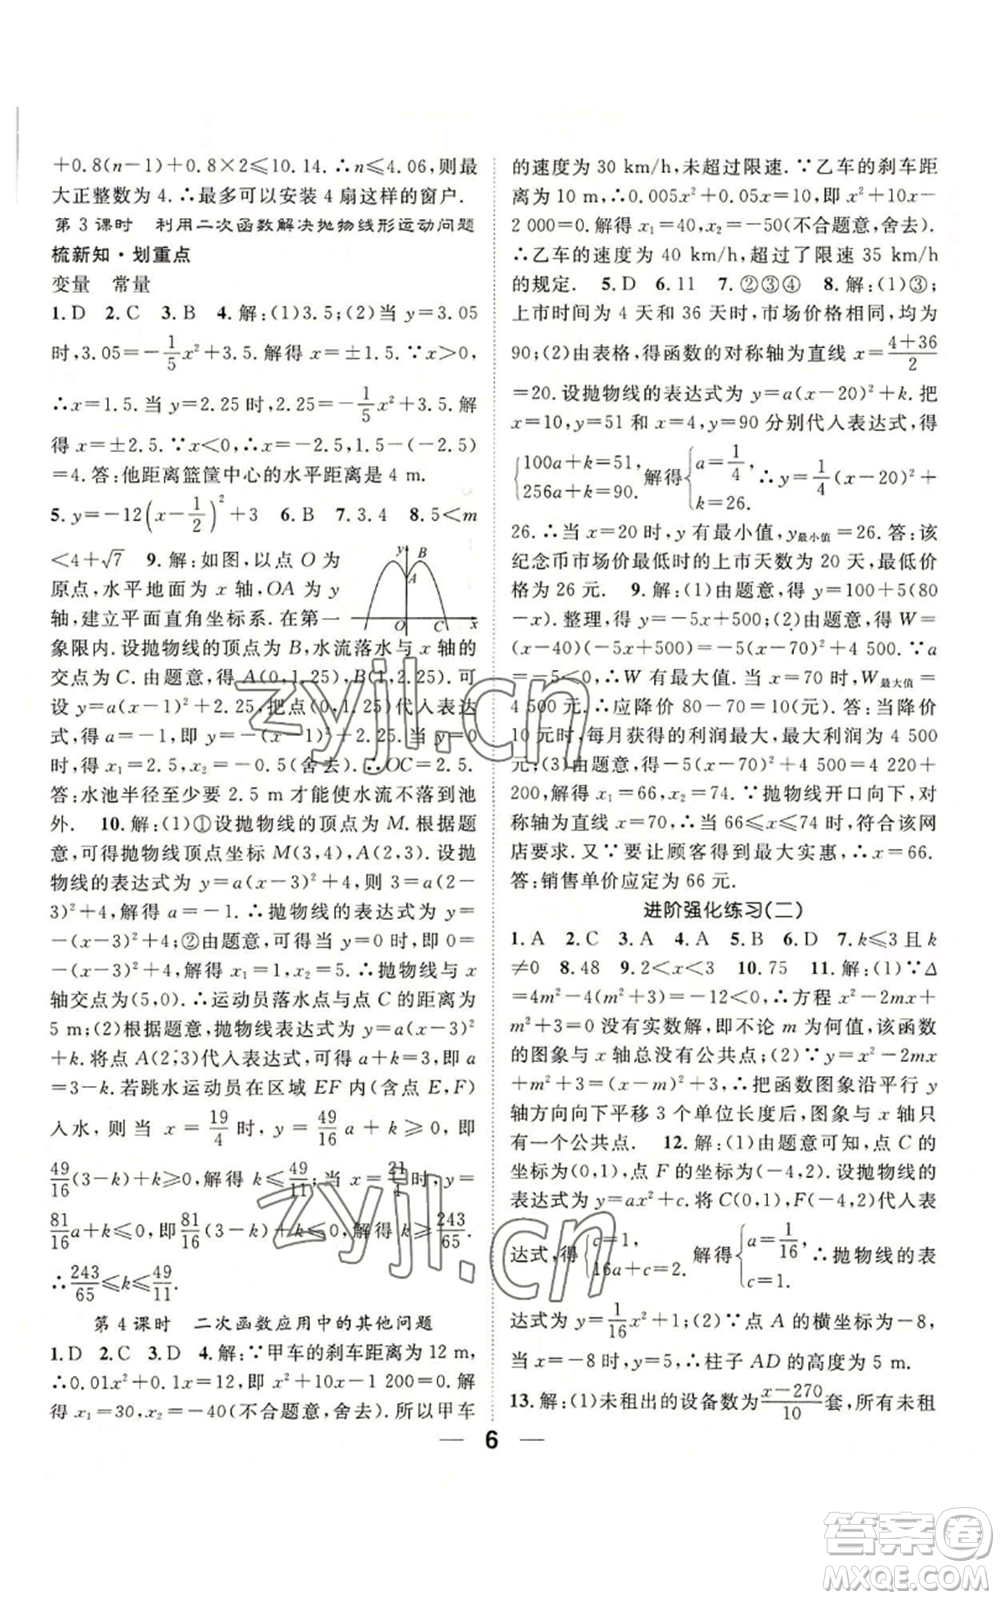 +0.8(n-1)+0.8×2≤10.14.∴n≤4.06,则最
大正整数为 4.∴最多可以安装 4 扇这样的窗户.
第 3 课时 利用二次函数解决抛物线形运动问题
梳新知·划重点
变量 常量
1.D 2.C 3.B 4.解:(1)3.5;(2)当 y=3.05
时,3.05=-1/5x²+3.5.解得 x=±1.5.∵x>0,
∴x=1.5.当 y=2.25 时,2.25=-1/5x²+3.5.解
得 x=±2.5.∵x<0,∴x=-2.5,1.5-(-2.5)
=4.答:他距离篮筐中心的水平距离是 4 m.
5.y=-12(x-1/2)²+3 6.B 7.3.4 8.5<m
<4+√7 9.解:如图,以点 O 为
原点,水平地面为 x 轴,OA 为 y
轴,建立平面直角坐标系.在第一
象限内.设抛物线的顶点为 B,水流落水与 x 轴的
交点为 C.由题意,得 A(0,1.25),B(1,2.25).可
设 y=a(x-1)²+2.25,把点(0,1.25)代入表达
式,得 a=-1.∴y=-(x-1)²+2.25.当 y=0
时,得 x₁=2.5,x₂=-0.5(舍去).∴OC=2.5.
答:水池半径至少要 2.5 m才能使水不能落到池
外. 10.解:(1)①设抛物线的顶点为 M.根据题
意,可得抛物线顶点坐标 M(3,4),A(2,3).设抛
物线的表达式为 y=a(x-3)²+4,则 3=a(2-
3)²+4,解得 a=-1.∴抛物线的表达式为 y=
-(x-3)²+4;②由题意,可得 0=-(x-3)²+
4,解得 x₁=1(舍去),x₂=5.∴抛物线与 x
轴交点为(5,0).∴运动员落水点与点 C 的距离为
5 m;(2)根据题意,抛物线的表达式为 y=a(x-3)²
+k.将点 A(2,3)代入表达式,可得 a+k=3,即
a=3-k.若跳水运动员在区域 EF 内(含点 E,F)
入水,则当 x=19/4 时,y=49/16a+k≥0,即
49/16(3-k)+k≥0,解得 k≤49/11;当 x=21/4时,y=
81/16a+k≤0,即81/16(3-k)+k≤0,解得 k≥243/65.
∴243/65≤k≤49/11.
第 4 课时 二次函数应用中的其他问题
1.D 2.C 3.D 4.解:∵甲车的刹车距离为 12 m,
∴0.01x²+0.1x=12,即 x²+10x-1 200=0.解
得 x₁=30,x₂=-40(不合题意,舍去).所以甲车
的速度为 30 km/h,未超过限速.∵乙车的刹车距
离为 10 m,∴0.005x²+0.05x=10,即 x²+10x-
2 000=0.解得 x₁=40,x₂=-50(不合题意,舍去).
∴乙车的速度为 40 km/h,超过了限速 35 km/h
的规定. 5.D 6.11 7.②③④ 8.解:(1)③;(
上市时间为 4 天和 36 天时,市场价格相同,均为
90;(2)由表格,得函数的对称轴为直线 x=4+36/2
=20.设抛物线的表达式为 y=a(x-20)²+k.把
x=10,y=51 和 x=4,y=90 分别代入表达式,得
{100a+k=51, 256a+k=90. 解得{a=1/4, k=26. ∴y=1/4(x-20)²+
26.∴当 x=20 时,y 有最小值,y最小值=26.答:该
纪念币市场价最低时的上市天数为 20 天,最低价
格为 26 元. 9.解:(1)由题意,得 y=100+5(80
-x).整理,得 y=-5x+500;(2)由题意,得 W=
(x-40)(-5x+500)=-5(x-70)²+4 500.∵a
=-5<0,∴W 有最大值.当 x=70 时,W最大值=
4 500.∴应降价 80-70=10(元).答:当降价
10 元时,每月获得的利润最大,最大利润为 4 500
元;(3)由题意,得-5(x-70)²+4 500=4 220+
200.解得 x₁=66,x₂=74.∵抛物线开口向下,对
称轴为直线 x=70,∴当 66≤x≤74 时,符合该网
店要求.又∵要让顾客得到最大实惠,∴x=66.
答:销售单价应定为 66 元.
进阶强化练习(二)
1.A 2.C 3.A 4.A 5.B 6.D 7.k≤3 且 k
≠0 8.48 9.2<x<3 10.75 11.解:(1)∵Δ
=4m²-4(m²+3)=-12<0,∴方程 x²-2mx+
m²+3=0 没有实数解,即不论 m 为何值,该函数
的图象与 x 轴总没有公共点;(2)∵y=x²-2mx
+m²+3=(x-m)²+3,∴把函数图象沿平行 y
轴方向向下平移 3 个单位长度后,图象与 x 轴只
有一个公共点. 12.解:(1)由题意可知,点 C 的
坐标为(0,1),点 F 的坐标为(-4,2).设抛物线的
表达式为 y=ax²+c.将 C(0,1),F(-4,2)代入表
达式,得{c=1, 16a+c=2. 解得{a=1/16, c=1. ∴抛物线的表
达式为 y=1/16x²+1;(2)∵点 A 的横坐标为-8,
当 x=-8 时,y=5,∴柱子 AD 的高度为 5 m.
13.解:(1)未租出的设备数为x-270/10套,所有未租
y
B
A
O
C
x
6
zyjl.cn
zyjl.cn
答案圈
MXQE.COM